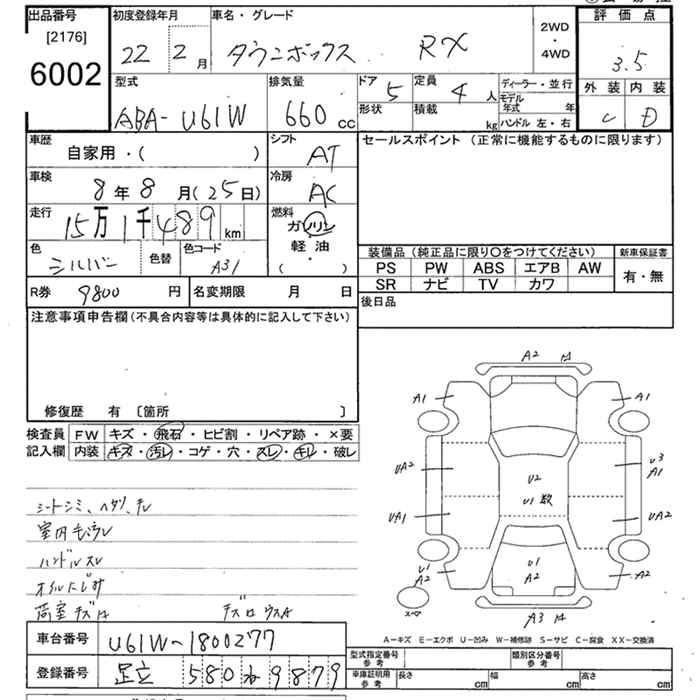 出品番号 初度登録年月 車名・グレード 2WD・4WD 評価点
[2176]
6002 22 2月 タウンボックス RX 3.5
型式 排気量 ドア 5 定員 4人 ディーラー・並行 外装 内装
ABA-U61W 660cc 形状 積載 kg モデル年式 年 ハンドル 左・右 C D
車歴 自家用・( ) シフト AT セールスポイント (正常に機能するものに限ります)
車検 8年8月(25日) 冷房 AC
走行 15万1千489km 燃料 ガソリン
色 シルバー 色替 色コード A31 軽油・( )
装備品(純正品に限り〇をつけてください) 新車保証書
PS PW ABS エアB AW 有・無
SR ナビ TV カワ
R券 9800円 名変期限 月 日 後日品
注意事項申告欄(不具合内容等は具体的に記入して下さい)
修復歴 有 〔箇所 〕
検査員 FW キズ・飛石・ヒビ割・リペア跡・×要
記入欄 内装 キズ・汚レ・コゲ・穴・スレ・キレ・破レ
A2
A1 A1
UA2 U2 U3 A1
UA1 U1 UA2
U1 A2 U1 A2 A2
A3
シートシミ、ヘタリ、チレ
室内モウラレ
ハンドルスレ
オイルにじみ
荷室キズ
A-キズ E-エクボ U-凹み W-補修跡 S-サビ C-腐食 XX-交換済
車台番号 U61W-1800277
登録番号 足立 580 ね 9879
型式指定番号 参考 類別区分番号 参考
車庫証明用 参考 長さ cm 幅 cm 高さ cm